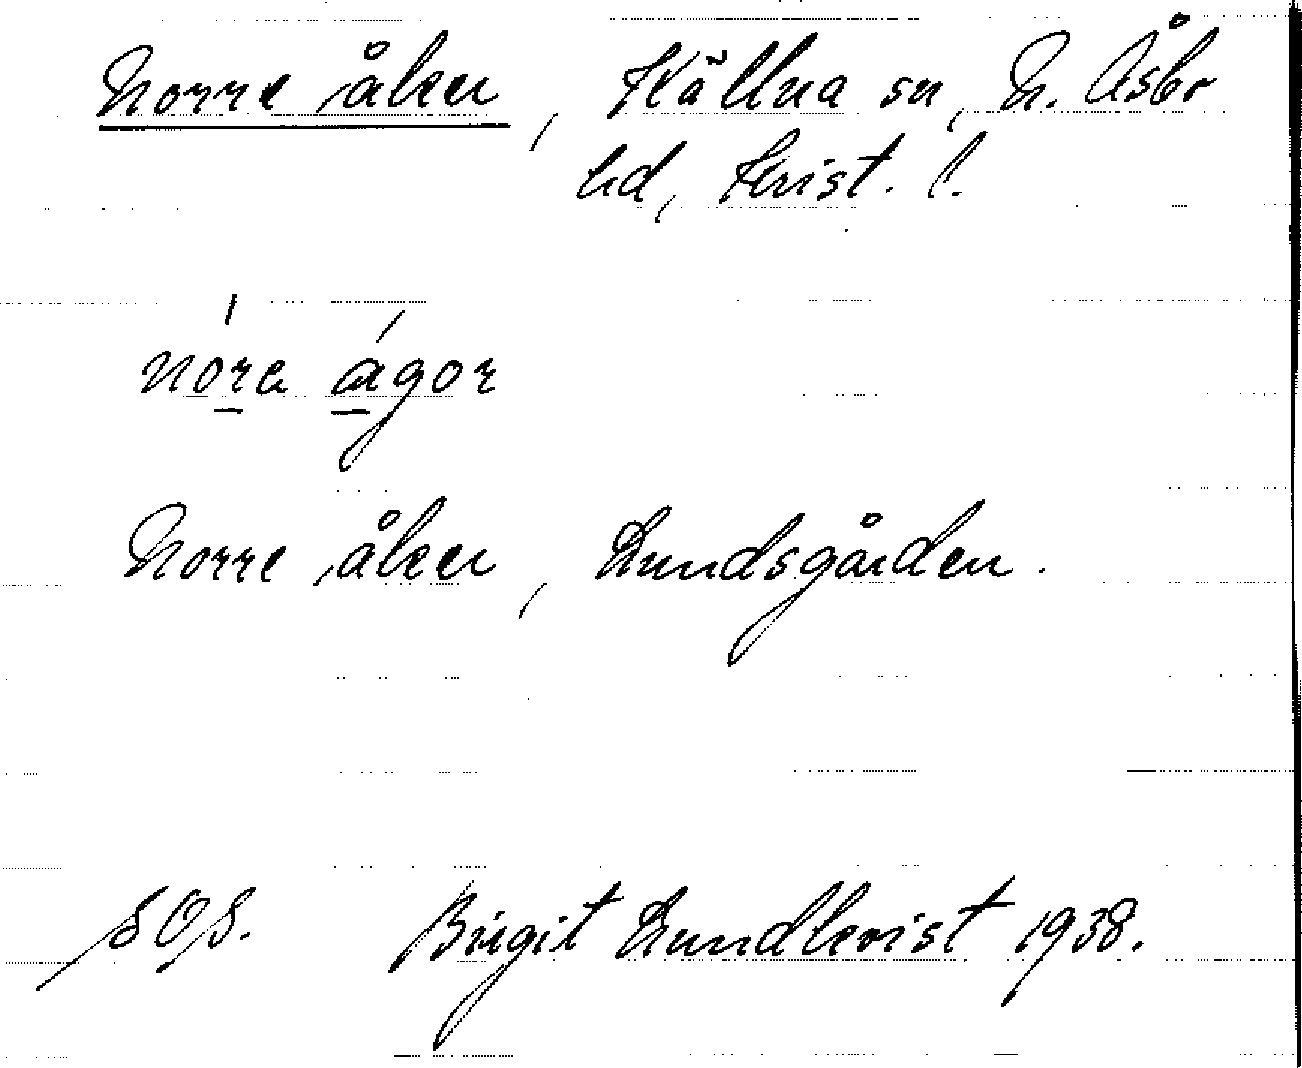 Norre åker, Källna sn, N. Åsbo
hd, Krist. l.
nóra ágor
Norre åker, Lundsgården.
SOS. Birgit Lundkvist 1938.